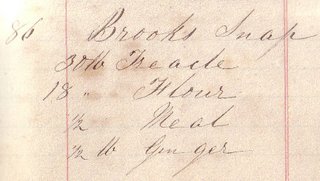 86 Brooks Snap
30 lb Treacle
18 " Flour
1/2 Meal
1/2 lb Ginger